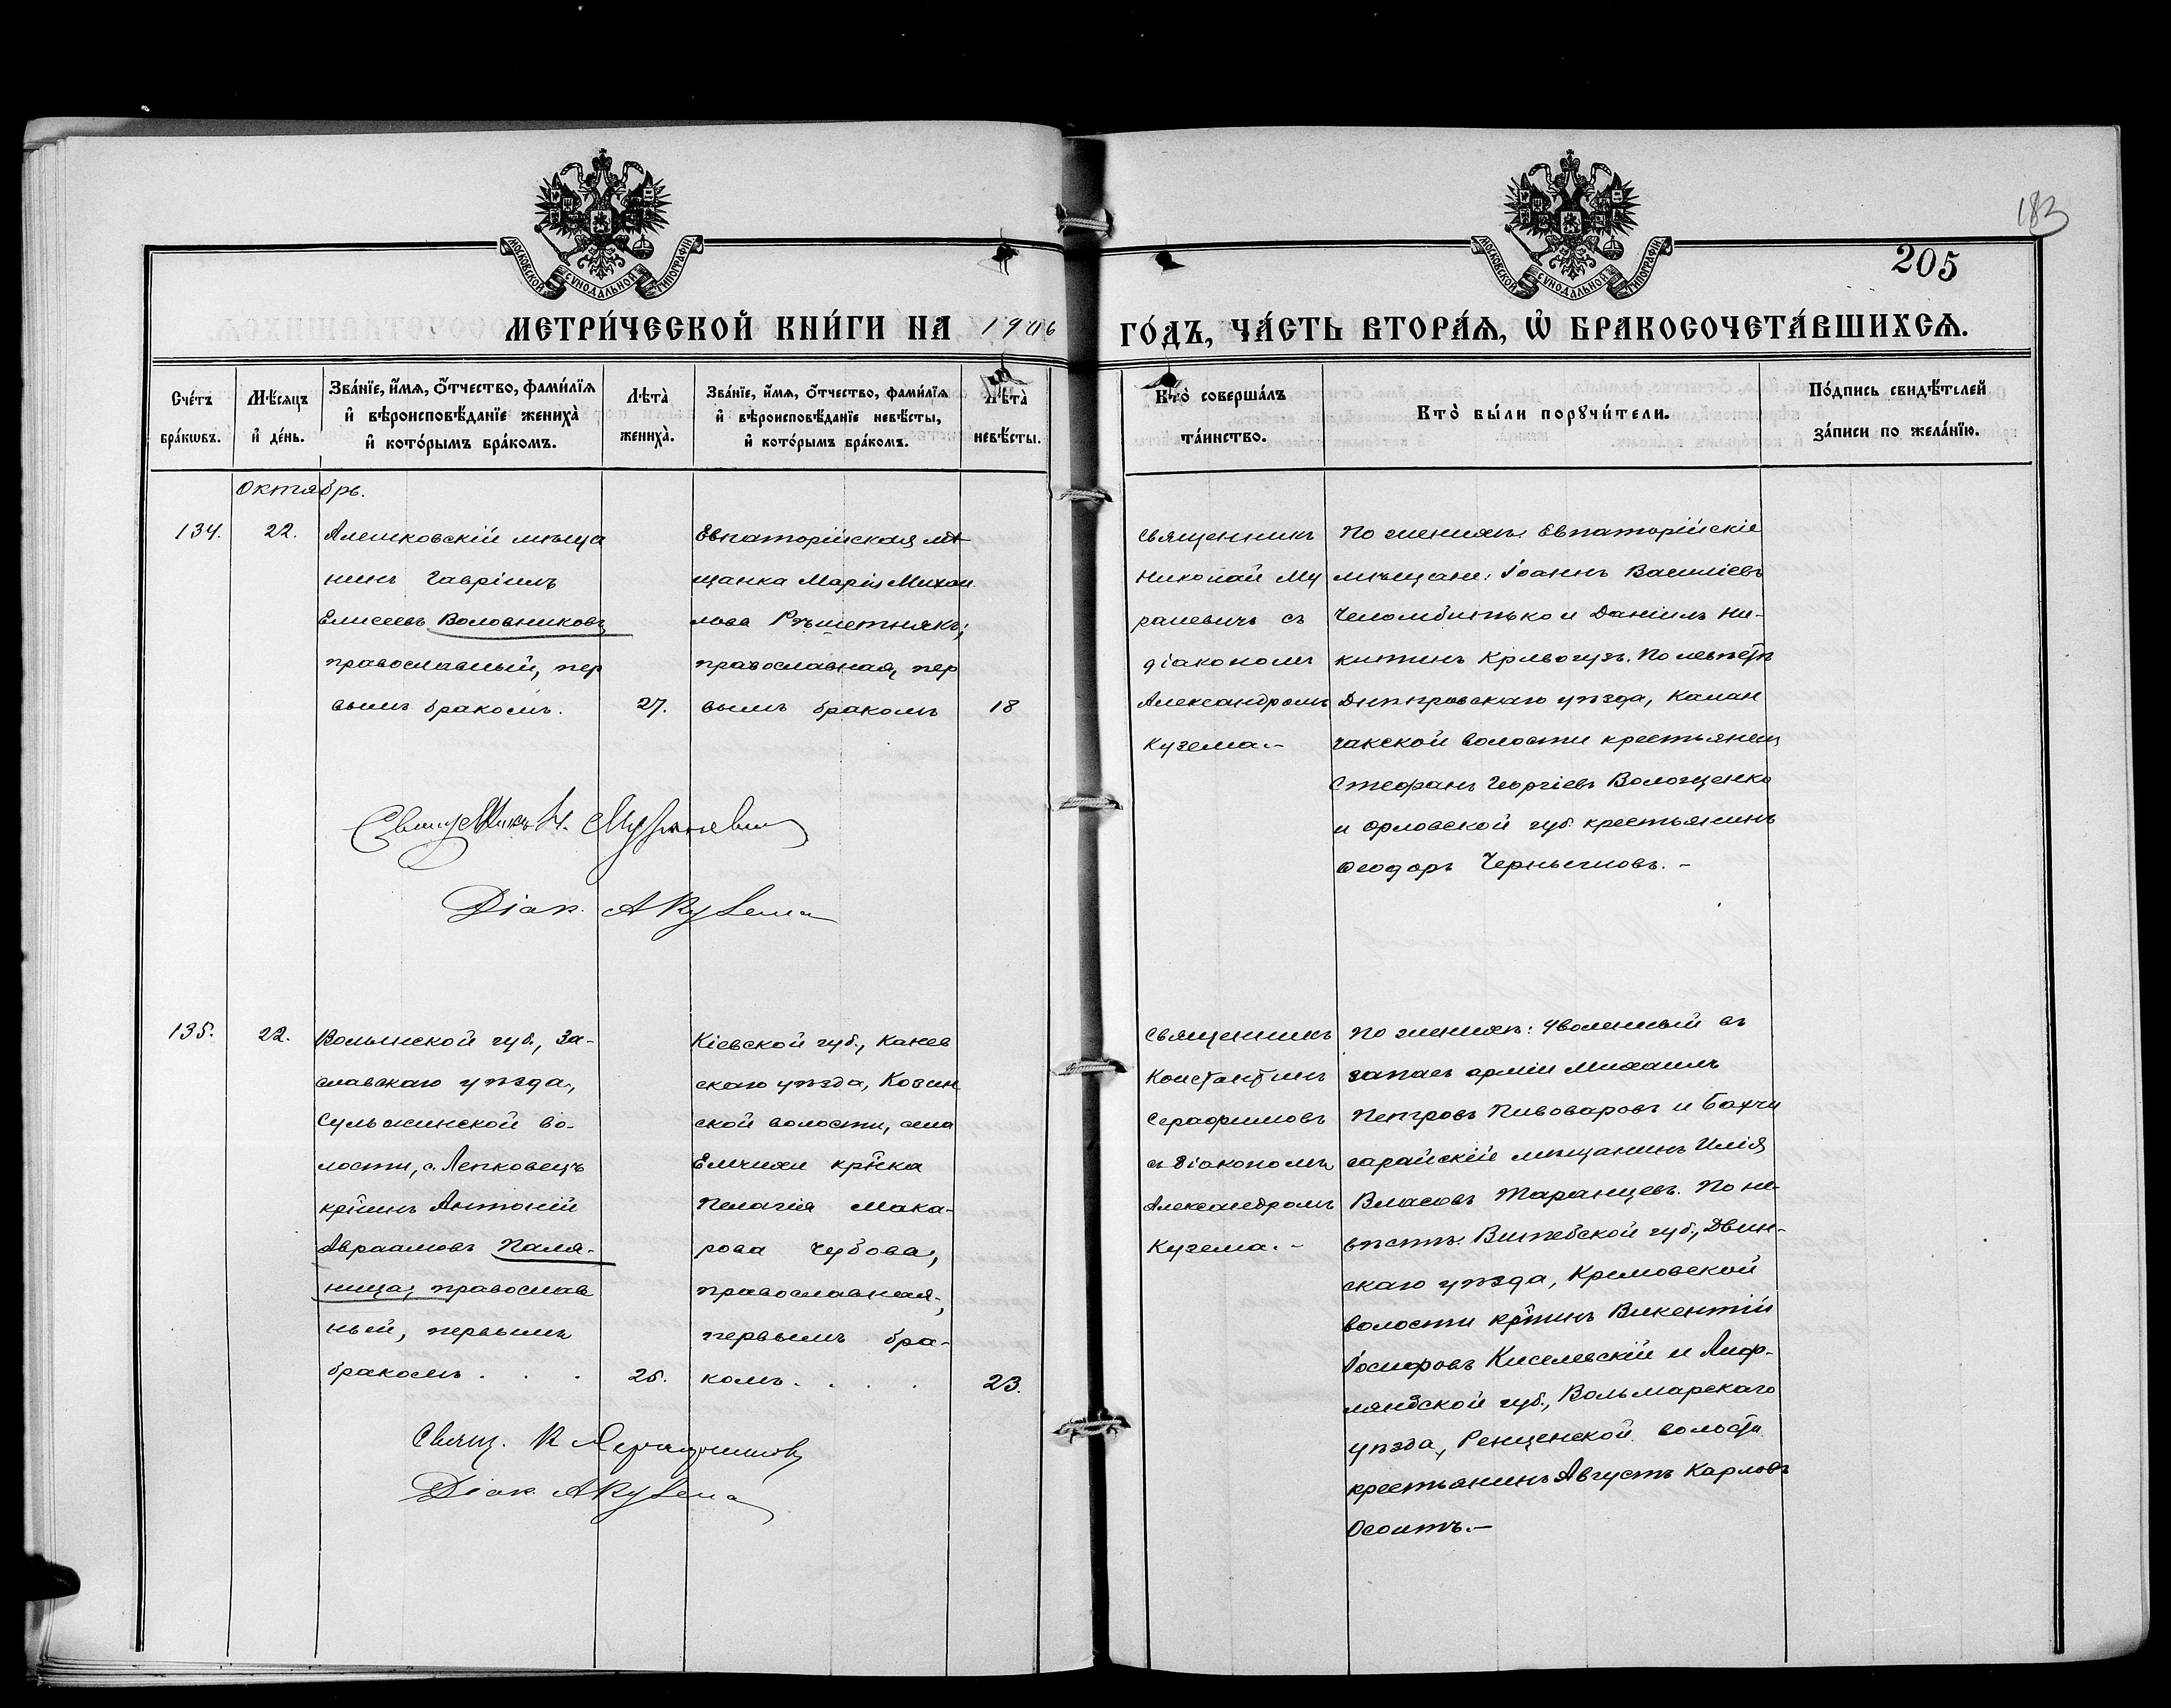 183
205
МОСКОВСКОЙ СѴНОДАЛЬНОЙ ТИПОГРАФІИ
МОСКОВСКОЙ СѴНОДАЛЬНОЙ ТИПОГРАФІИ
МЕТРИ́ЧЕСКОЙ КНИ́ГИ НА 1906
ГО́ДЪ, ЧА́СТЬ ВТОРА́Я, Ѡ҆ БРАКОСОЧЕТА́ВШИХСѦ.
Сче́тъ
бра́кѡвъ.
Мѣ́сяцъ
и҆ де́нь.
Зва́нїе, и҆́мѧ, ѻ҆́тчество, фами́лїѧ
и҆ вѣроисповѣ́данїе жениха̀
и҆ кото́рымъ бра́комъ.
Лѣ̀та
жениха̀.
Зва́нїе, и҆́мѧ, ѻ҆́тчество, фами́лїѧ
и҆ вѣроисповѣ́данїе невѣ́сты,
и҆ кото́рымъ бра́комъ.
Лѣ̀та
невѣ́сты.
Кто̀ соверша́лъ
та́инство.
Кто̀ бы́ли порꙋчи́тели.
По́дпись свидѣ́телей
за́писи по жела́нїю.
Октябрь.
134.
22.
Алешковскій мѣща
нинъ Гавріилъ
Елисеевъ Воловниковъ
православный, пер
вымъ бракомъ.
27.
Евпаторійская мѣ
щанка Марія Михаи
лова Рѣшетнякъ;
православная, пер
вымъ бракомъ
18
Священникъ
Николай Му
раневичъ съ
діакономъ
Александромъ
Кузема.-
По женихѣ: Евпаторійскіе
мѣщане: Іоаннъ Василіевъ
Челомбитько и Даніилъ Ни-
китинъ Кривогузъ. По невѣстѣ
Днѣпровскаго уѣзда, Калан
чакской волости крестьянинъ
Стефанъ Георгіевъ Вологценко
и Орловской губ. крестьянинъ
Ѳеодоръ Чернышовъ. -
Священникъ Н. Мураневичъ
Діак. А Кузема
135.
22.
Волынской губ., За-
славскаго уѣзда,
Сульжинской во-
лости, с. Лепковецъ
кр̃инъ Антоній
Авраамовъ Паля-
ница; православ
ный, первымъ
бракомъ . . .
25.
Кіевской губ., Канев
скаго уѣзда, Козин
ской волости, села
Емчихи кр̃нка
Пелагія Мака-
рова Чубова;
православная;
первымъ бра-
комъ. . . .
23.
Священникъ
Константинъ
Серафимовъ
съ діакономъ
Александромъ
Кузема. -
По женихѣ: уволенный въ
запасъ арміи Михаилъ
Петровъ Пивоваровъ и Бахчи
сарайскій мѣщанинъ Илія
Власовъ Таранцевъ. По не-
вѣстѣ: Витебской губ., Двин-
скаго уѣзда, Креловской
волости кр̃нинъ Викентій
Іосифовъ Киселевскій и Лиф-
ляндской губ., Вольмарскаго
уѣзда, Ренценской волости
крестьянинъ Августъ Карловъ
Осоитъ.-
Свящ. К Серафимовъ
Діак. А Кузема